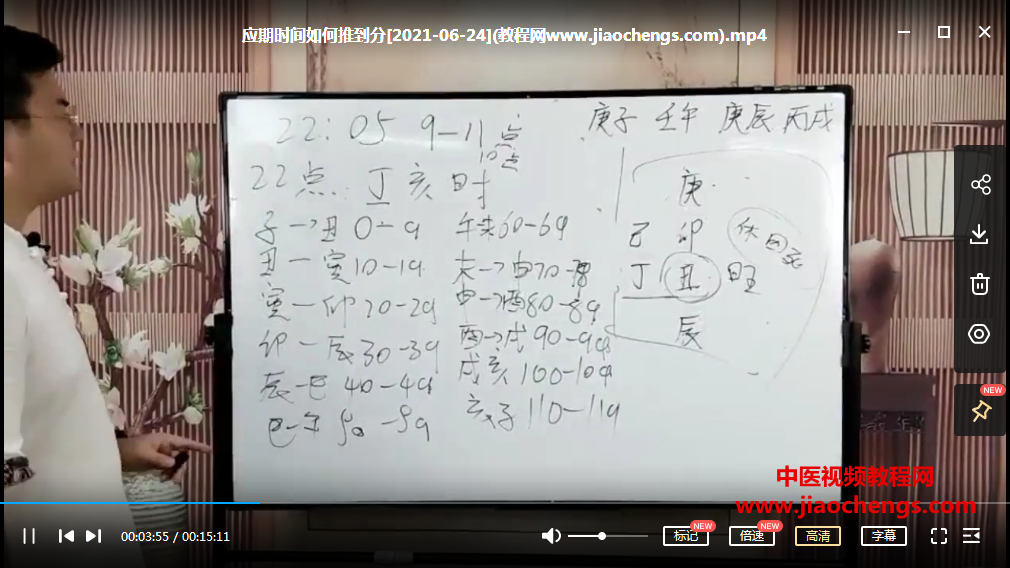 应期时间如何推到分[2021-06-24](教程网www.jiaochengs.com).mp4
22:05 9-11点
10点
庚子 壬午 庚辰 丙戌
22点 丁亥时
庚
己 卯
休囚死
丁 丑 旺
辰
子→丑 0-9
丑-寅 10-19
寅-卯 20-29
卯-辰 30-39
辰-巳 40-49
巳-午 50-59
午未 60-69
未→申 70-79
申→酉 80-89
酉→戌 90-99
戌亥 100-109
亥子 110-119
中医视频教程网
www.jiaochengs.com
NEW
00:03:55 / 00:15:11
标记 NEW
倍速 NEW
高清
字幕